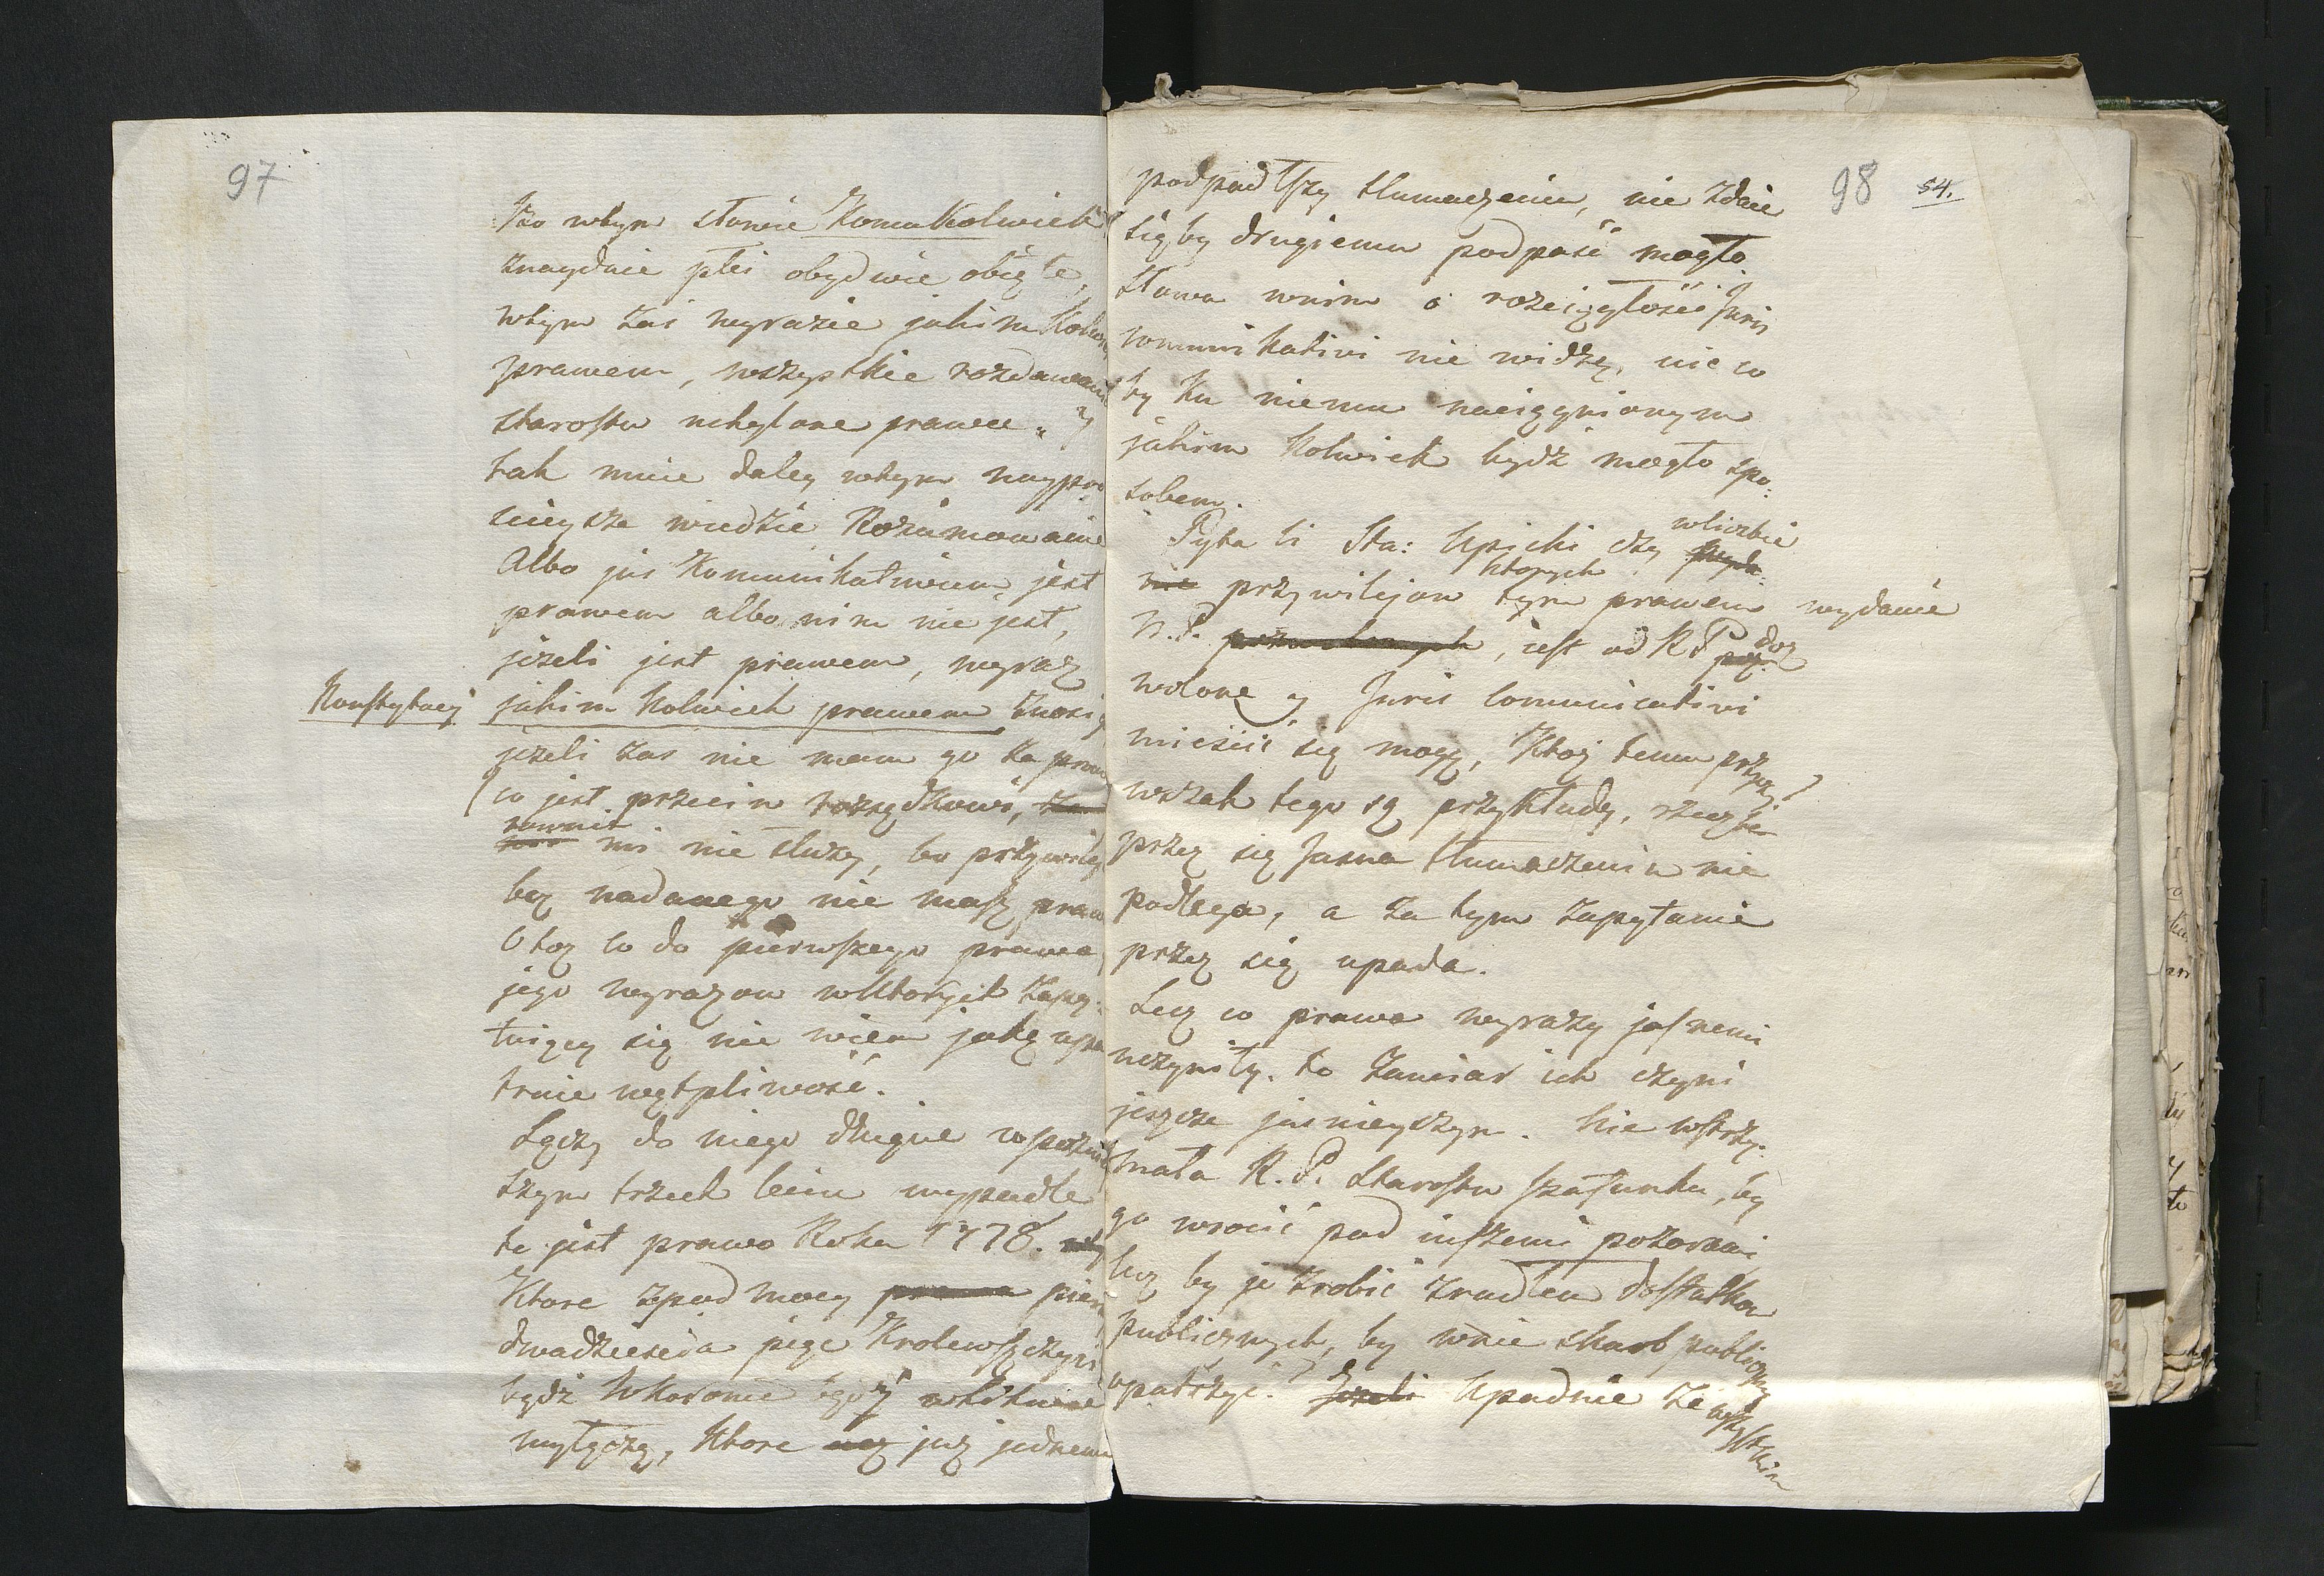 97
bo wtym słowie Komukolwiek
znaydnie płci obydwie obięte,
wtym zaś wyrazie jakim Kolwi
prawem, wszystkie rozdawani
starostw uchylone prawa. y
tak mnie daley wtym nayproś
cieysze wiedzie Rozumowanie
Albo jus Komunikatiwum jest
prawem albo nim nie jest,
jeżeli jest prawem, wyraz
Konstytucÿ jakim Kolwiek prawem znosi g
jeżeli zas nie mam go za praw
co jest przeciw rozsądkowi,
rownie
mi nie służy, bo przywiley
bez nadanego nie masz praw
Otoż co do pierwszego prawa
jego wyrazow wktorych zapy-
tuiący się nie wiem jaką upa
truie wątpliwość.
Łączy do niego drugie wpozniey
szym trzech leciu wypadłe
to jest prawo Roku 1778.
Ktore zpod mocy prawa pier
dwadziescia pięc Krolewszczyzn
bydź wKoronie tyż y wLitwie
wyłączą, Ktore już jednemu
98 54.
podpadłszy tłumaczeniu, nie zdaie
się by drugiemu podpaść mogło
Słowa wnim o rozciągłości Juris
communikativi nie widzę, nic co
by Ku niemu naciągnionym
jakim Kolwiek bydź mogło spo-
sobem.
Pyta li Sta: Upicki czy
wliczbie
ktorych
przywilejow tym prawem wydanie
N.P. , iest od RP
doz
wolone y Juris Communicativi
mieścić się mogą, Ktoż temu przeczy?
wszak tego są przykłady, rzecz
przez się Jasna tłumaczeniu nie
podlega, a za tym zapytanie
przez się upada.
Lecz co prawa wyrazy jasnemi
uczyniły. to zamiar ich czyni
jeszcze jaśnieyszym. Nie wstrzy-
mała R.P. Starostw szafunku, by
go wrocić pod inszemi pozorami
lecz by je zrobić zrudłem dostatkow
publicznych, by wnie skarb publiczny
opatrzyć. Jeżeli Upadnie ze wszystkim